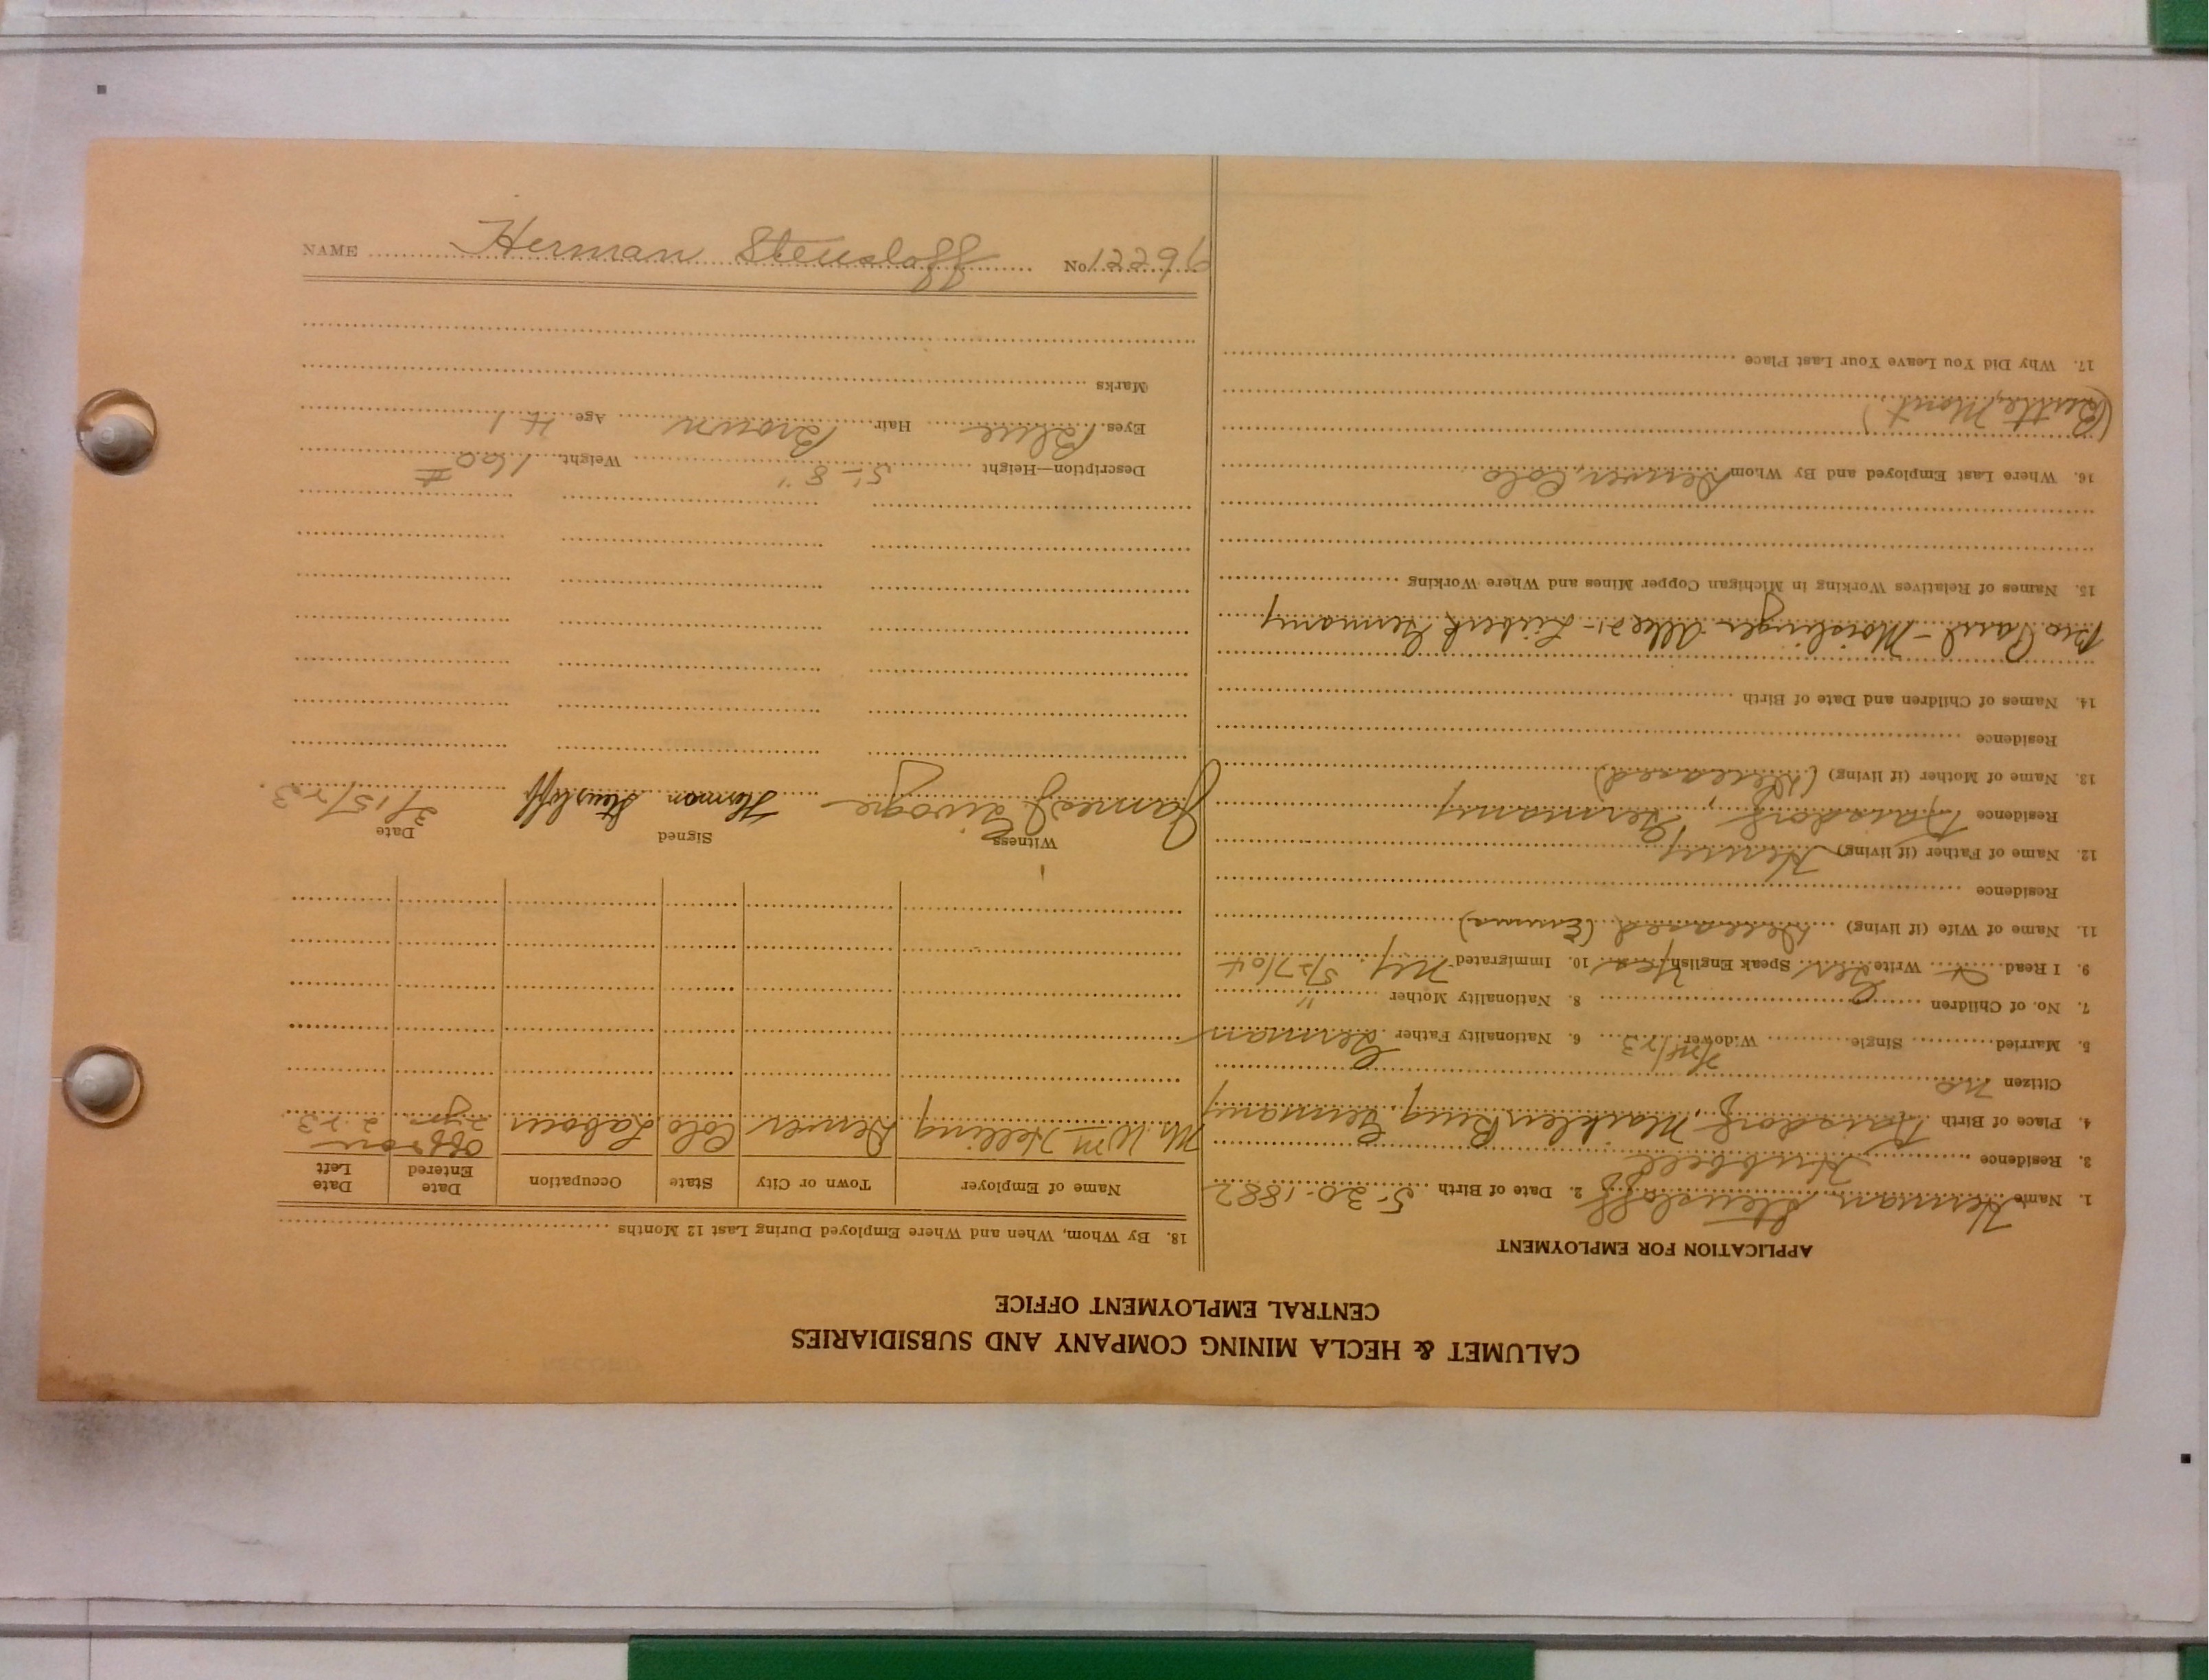 CALUMET & HECLA MINING COMPANY AND SUBSIDIARIES
CENTRAL EMPLOYMENT OFFICE
APPLICATION FOR EMPLOYMENT
1. Name Herman Steusloff 2. Date of Birth 5-20-1882
3. Residence Hubbell
4. Place of Birth Raisdorf, Macklen Burg, Germany
Citizen no
5. Married Single Widower 6. Nationality Father German
7. No. of Children 8. Nationality Mother "
9. I Read Write Speak English Yes 10. Immigrated NY 5/27/04
11. Name of Wife (if living) Deceased (Emma)
Residence
12. Name of Father (if living) Henry
Residence Raisdorf, Germany
13. Name of Mother (if living) (Deceased)
Residence
14. Names of Children and Date of Birth
Bro Paul - Moislinger Allee Germany
15. Names of Relatives Working in Michigan Copper Mines and Where Working
16. Where Last Employed and By Whom Denver, Colo
(Butte, Mont)
17. Why Did You Leave Your Last Place
18. By Whom, When and Where Employed During Last 12 Months
Name of Employer Town or City State Occupation Date Entered Date Left
Mr. Wm Helling Denver Colo Labour Off & on 2 yrs 2-23
Witness Signed Date
James Herman Steusloff 3/15/23.
Description—Height 5'-8" Weight 160 #
Eyes Blue Hair Brown Age 41
Marks
NAME Herman Steusloff No 12296